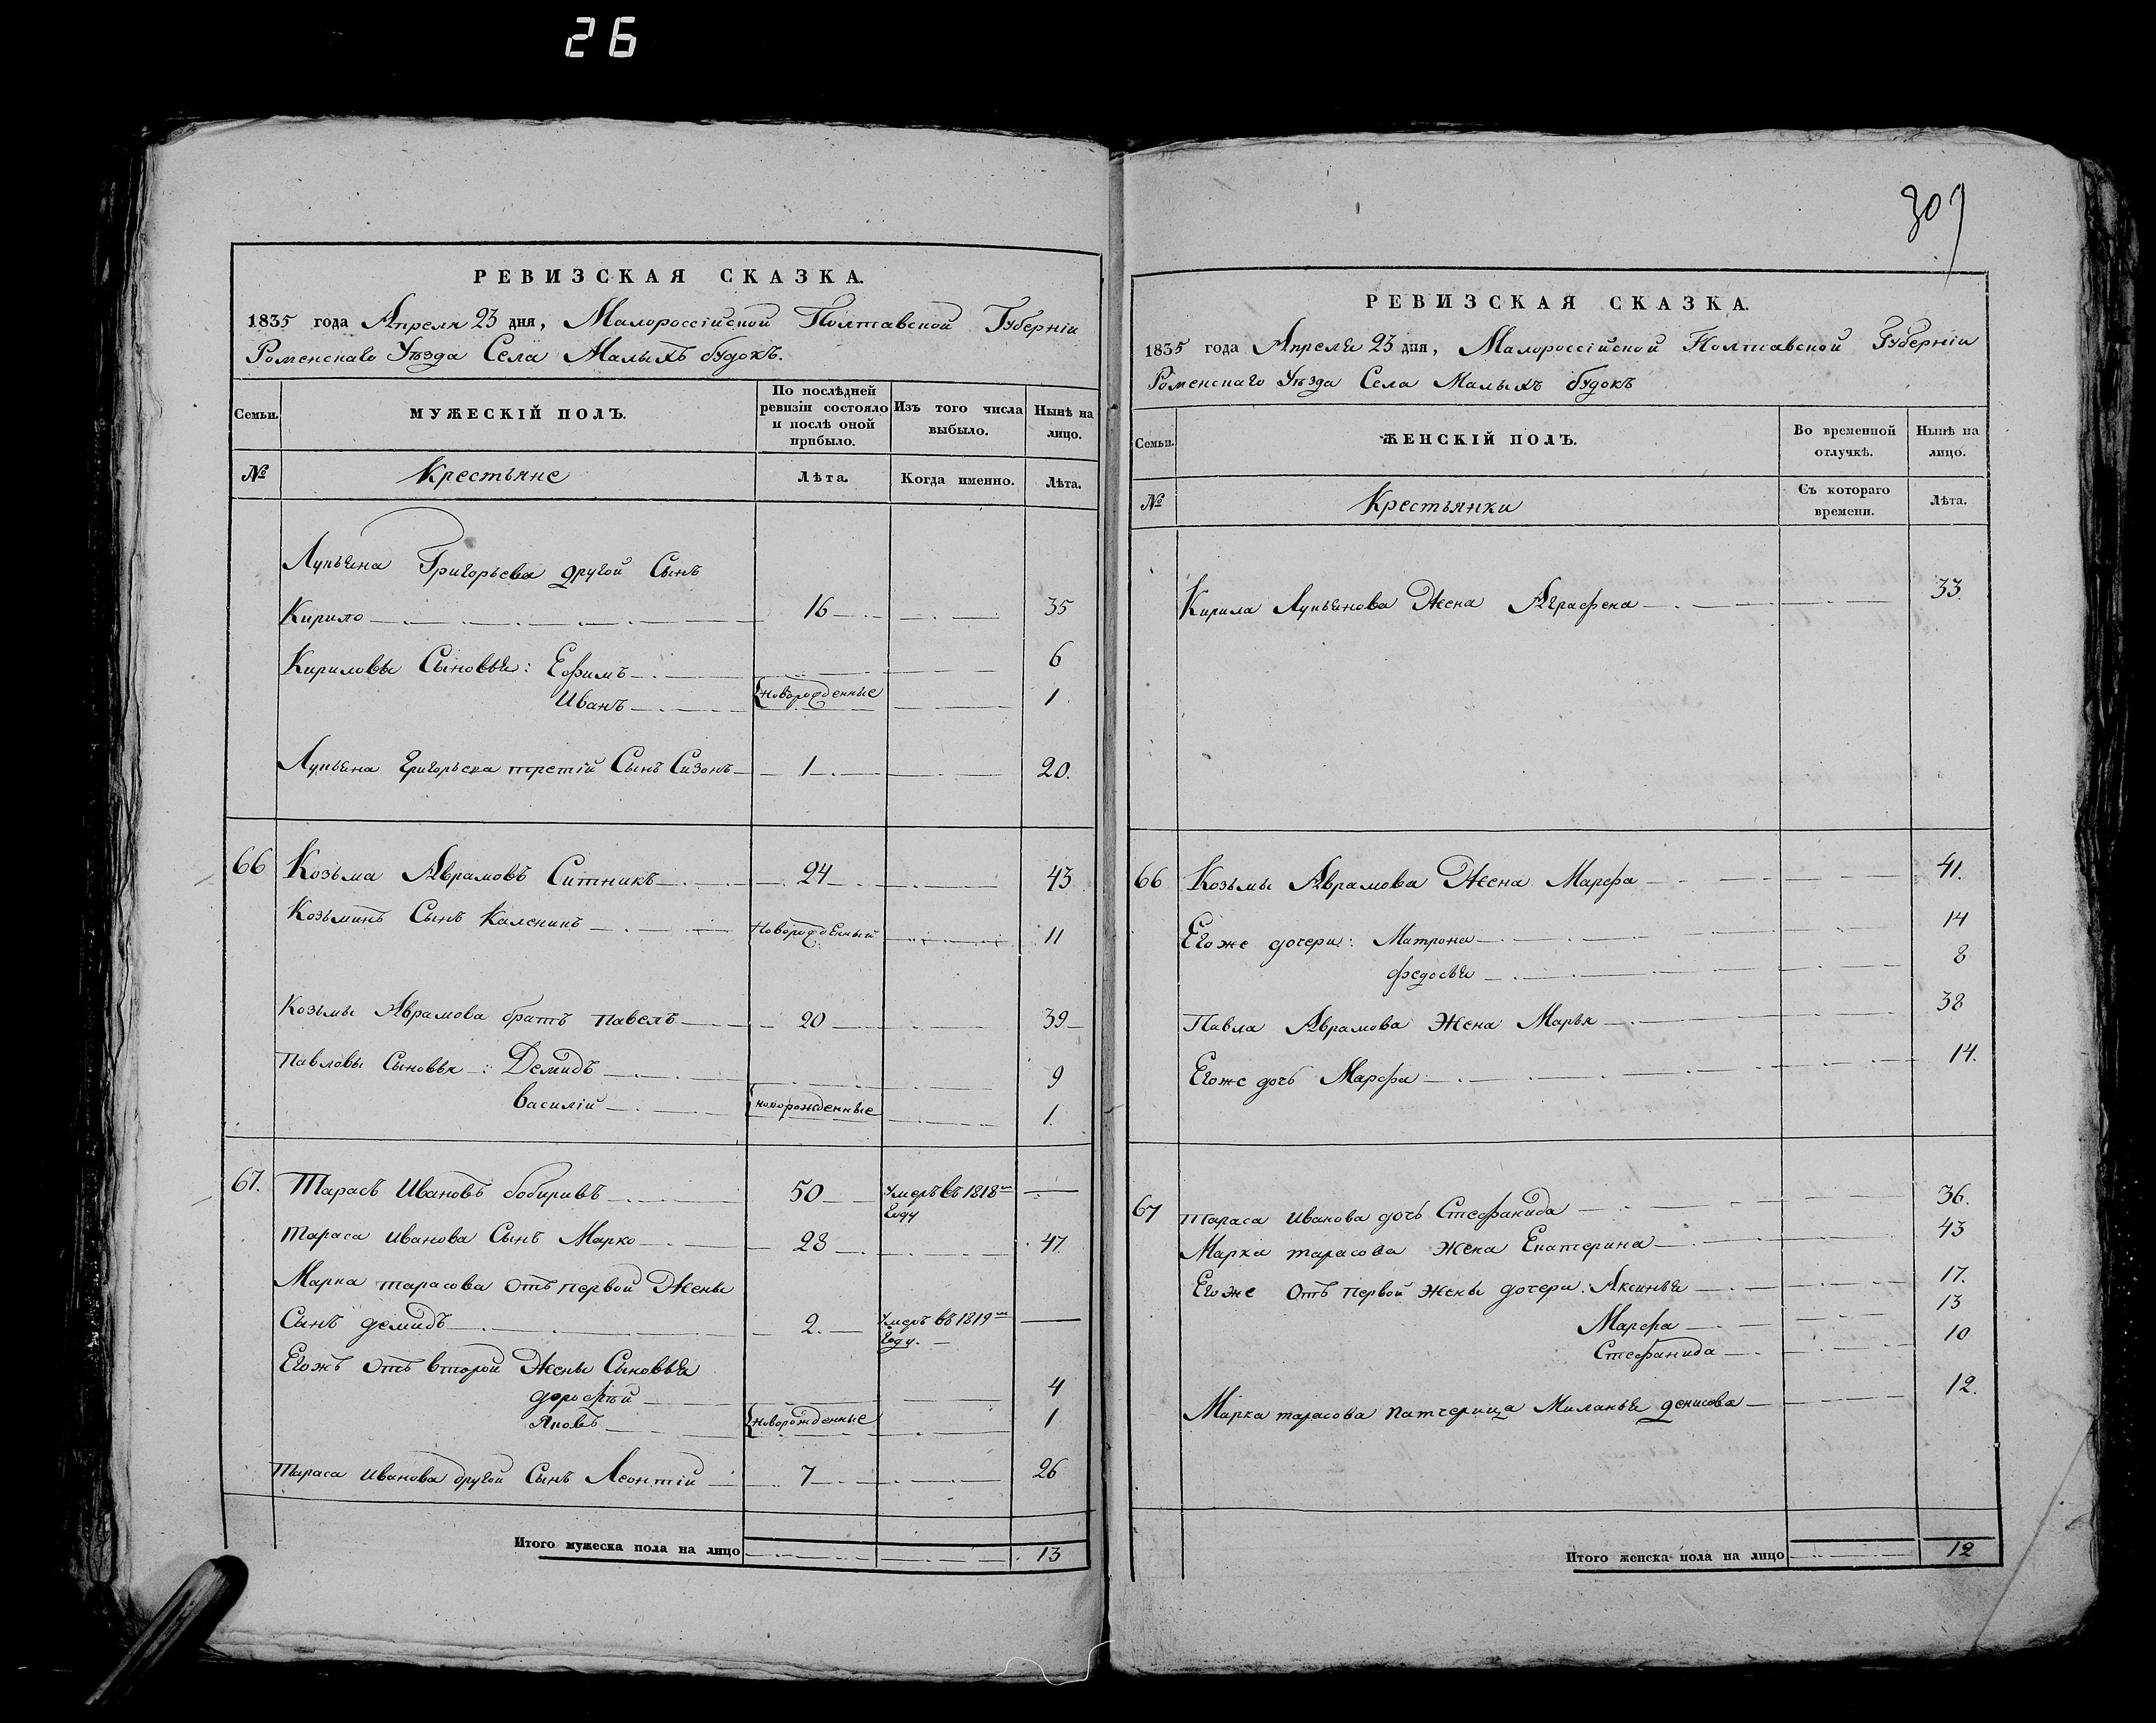 26
РЕВИЗСКАЯ СКАЗКА.
1835 года Апреля 23 дня, Малороссійской Полтавской Губерніи
Роменскаго Уѣзда Села Малыхъ будокъ.
Семьи.
МУЖЕСКІЙ ПОЛЪ.
По послѣдней ревизіи состояло и послѣ оной прибыло.
Изъ того числа выбыло.
Нынѣ на лицо.
№
Крестьяне
Лѣта.
Когда именно.
Лѣта.
Лупьяна Григорьева другой Сынъ
Кирило 16 35
Кириловы Сыновья: Ефимъ 6
Иванъ новорожденные 1
Лупьяна Григорьева третій Сынъ Сизонъ 1 20.
66 Козьма Аврамовъ Ситникъ 24 43
Козьминъ Сынъ Каленикъ Новорожденный 11
Козьмы Аврамова братъ Павелъ 20 39
Павловы Сыновья: Демидъ 9
Василій новорожденные 1.
67. Тарасъ Ивановъ бобиривъ 50 Умеръ въ 1818м Году
Тараса Иванова Сынъ Марко 28 47.
Марка тарасова Отъ первой Жены
Сынъ демидъ 2. Умеръ въ 1819м Году.
Егожъ Отъ второй Жены Сыновья
дорофѣй 4
Яковъ Новорожденные 1
Тараса Иванова другой Сынъ Леонтій 7 26
Итого мужеска пола на лицо 13
309
РЕВИЗСКАЯ СКАЗКА.
1835 года Апреля 23 дня, Малороссійской Полтавской Губерніи
Роменскаго Уѣзда Села Малыхъ будокъ
Семьи.
ЖЕНСКІЙ ПОЛЪ.
Во временной отлучкѣ.
Нынѣ на лицо.
№
Крестьянки
Съ котораго времени.
Лѣта.
Кирила Лупьянова Жена Аграфена 33.
66 Козьмы Аврамова Жена Марфа 41.
Егоже дочери: Матрона 14
федосья 8
Павла Аврамова Жена Марья 38
Егоже дочь Марфа 14.
67 Тараса Иванова дочь Стефанида 36.
Марка тарасова Жена Екатерина 43
Егоже Отъ первой жены дочери: Аксинья 17.
Марфа 13
Стефанида 10
Марка тарасова патчерица Миланья денисова 12.
Итого женска пола на лицо 12